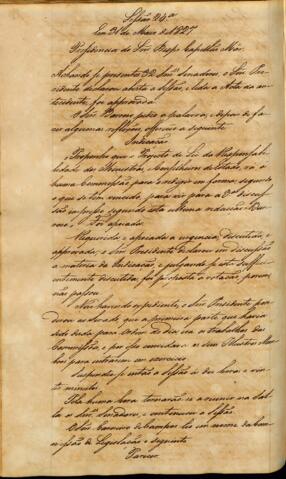 Sessão 24.ª
Em 31 de Maio de 1827
Presidencia do Snr. Bispo Capellão Mór.
Achando-se presentes 32 Snrs. Senadores, o Snr. Pre-
sidente declarou aberta a Sessão, e lida a Acta da an-
tecedente, foi approvada.
O Snr. Borges pedio a palavra, e depois de fa-
zer algumas reflexões offereceo a seguinte
Indicação
Proponho que o Projecto de Lei da Responsabili-
dade dos Ministros, e Conselheiros de Estado, vá a
huma Commissão para o redigir em forma, segundo
o que se tem vencido, para vir para a 3.ª discus-
são impresso segundo esta ultima redacção.
Foi apoiada.
Requerida, e apoiada a urgencia, discutida, e
approvada, o Snr. Presidente declarou em discussão
a materia da Indicação, e julgando-se suffi-
cientemente discutida, foi posta á votação, porem
não passou.
Não havendo expediente, o Snr. Presidente pon-
derou ao Senado, que a primeira parte que havia
sido dada para Ordem do dia era o trabalho das
Commissões, e por isso convidava os seus Illustres Mem-
bros para entrarem em exercicio.
Suspendeo-se então a Sessão ás dez horas e vin-
te minutos.
Á huma hora tornarão-se a reunir na Sal-
la os Snrs. Senadores, e continuou a Sessão.
O Snr. Carneiro de Campos leo em nome da Com-
missão de Legislação o seguinte
Parecer